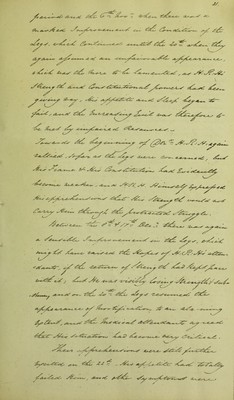 period and the 6th Novr. when there was a
marked Improvement in the Condition of the
Legs, which continued until the 20th when they
again assumed an unfavorable appearance,
which was the more to be lamented, as H.R.H's
Strength and Constitutional powers had been
giving way, His appetite and Sleep began to
fail, and the Succeeding Evil was therefore to
be met by impaired Resources –
Towards the beginning of Decr. H.R.H. again
rallied so far as the Legs were concerned, but
His Frame & His Constitution had Evidently
become weaker, and H.R.H. Himself expressed
His apprehensions that His Strength would not
Carry Him through the protracted Struggle.
Between the 8th & 17th Decr. there was again
a Sensible Improvement in the Legs, which
might have raised the Hopes of H.R.H's atten-
dants, if the return of Strength had kept pace
with it, but He was visibly losing Strength &
and on the 20th the Legs resumed the
appearance of Mortification to an
extent, and the Medical attendants agreed
that His situation had become very critical.
These apprehensions were still further
excited on the 22d. His appetite had totally
failed Him, and other symptoms were